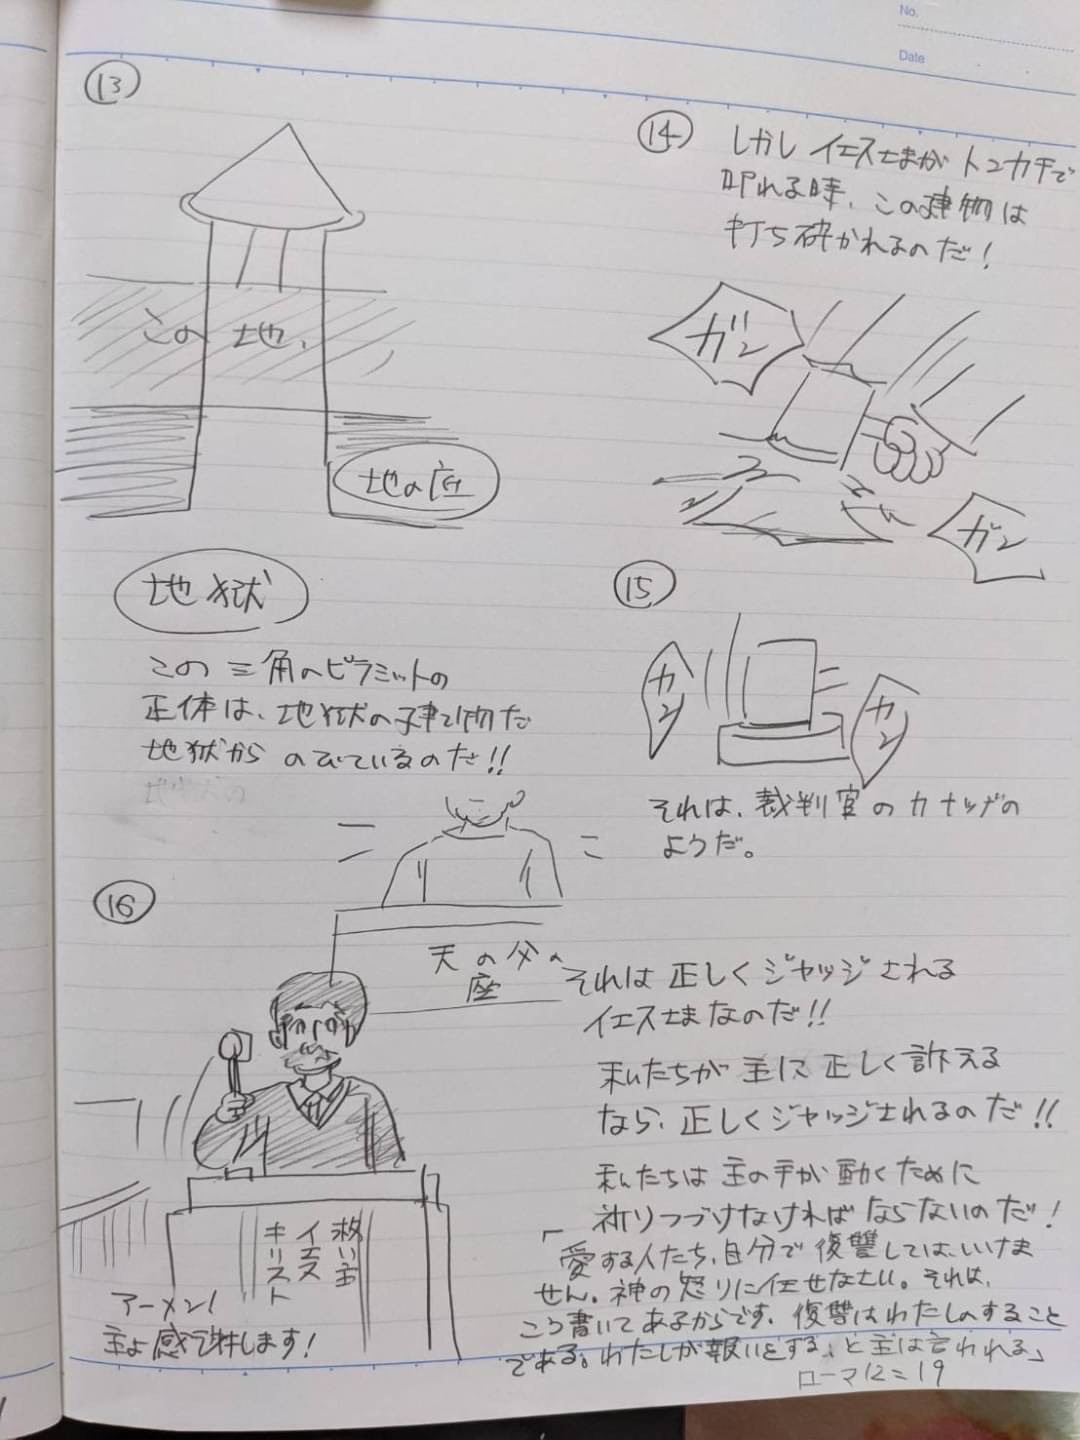 No.
Date
⑬
この地、
地の底
地獄
この三角のピラミットの
正体は、地獄の建物だ
地獄からのびているのだ!!
⑭
しかしイエスさまがトンカチで
叩れる時、この建物は
打ち砕かれるのだ!
ガン
ガン
⑮
カン
カン
それは、裁判官のカナヅチの
ようだ。
⑯
天の父の
座
それは正しくジャッジされる
イエスさまなのだ!!
私たちが主に正しく訴える
なら、正しくジャッジされるのだ!!
私たちは主の手が動くために
祈りつづけなければならないのだ!
救い主
イエス
キリスト
アーメン!
主よ感謝します!
「愛する人たち、自分で復讐してはいけま
せん。神の怒りに任せなさい。それは、
こう書いてあるからです。復讐はわたしのすること
である。わたしが報いをする、と主は言われる」
ローマ12=19